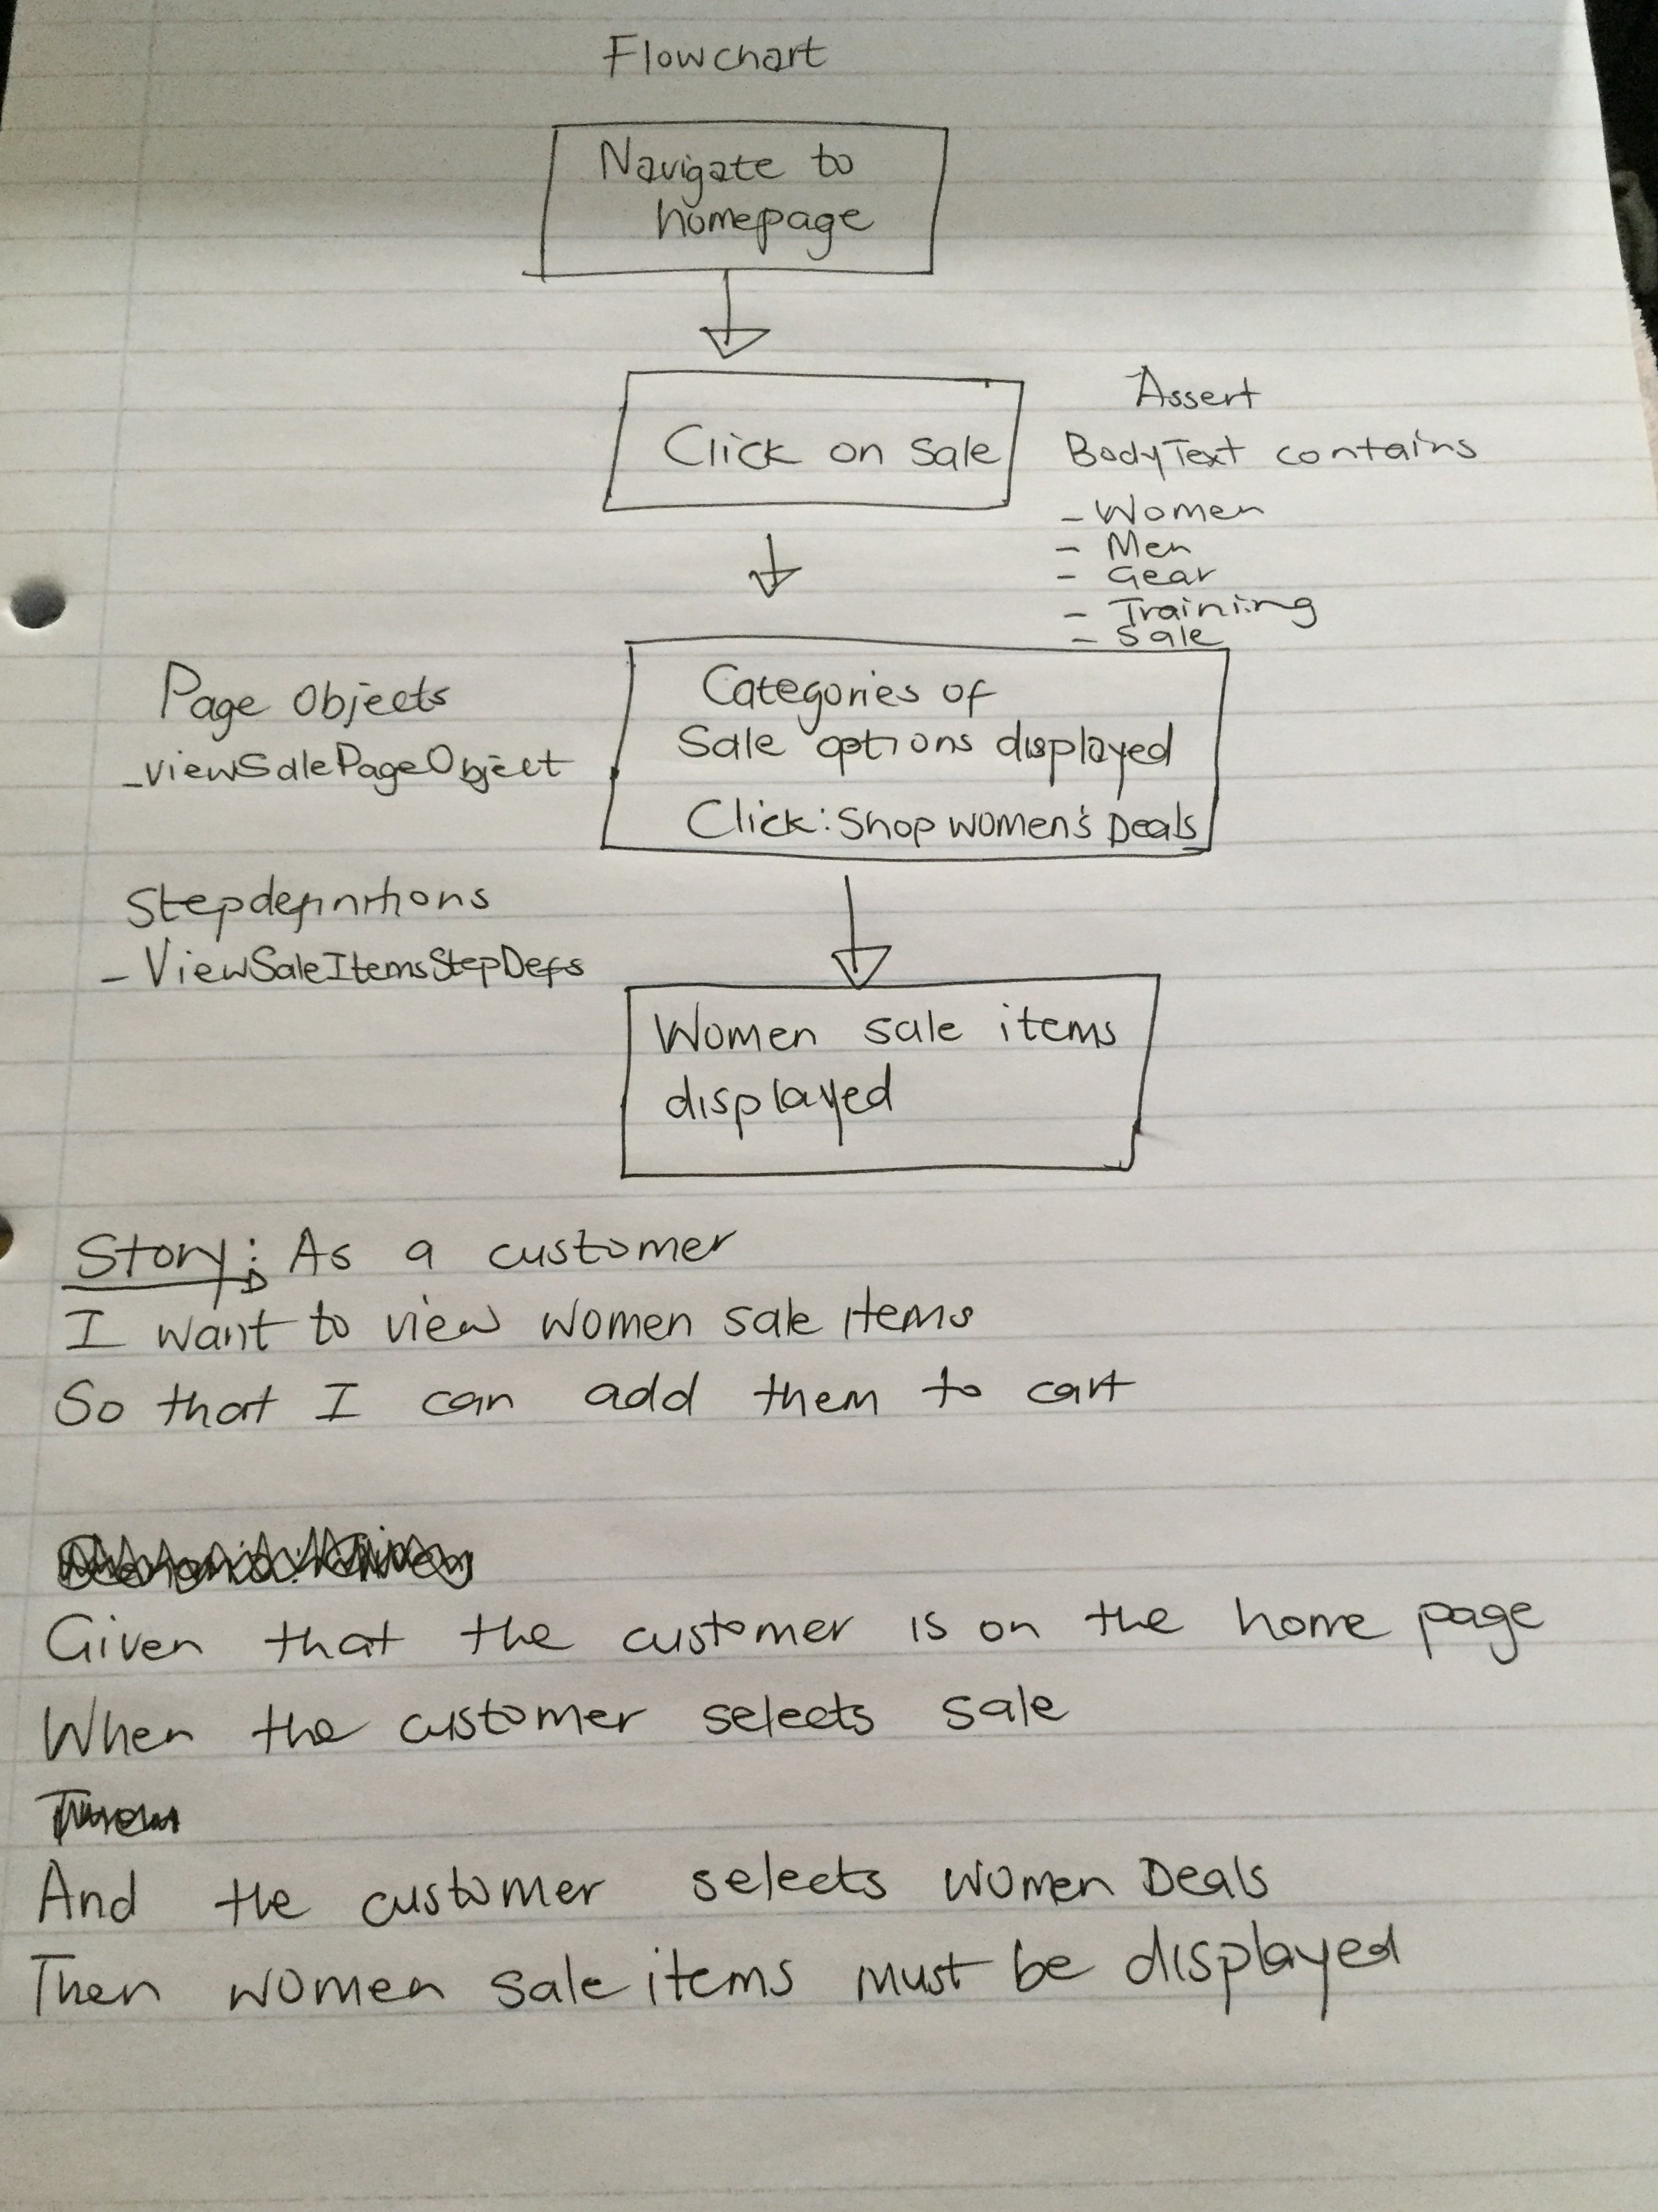 Flowchart
Navigate to
homepage
Click on Sale
Assert
BodyText contains
- Women
- Men
- Gear
- Training
- Sale
Page Objects
- viewSalePageObject
Categories of
Sale options displayed
Click: Shop women's Deals
Stepdefinitions
- ViewSaleItemsStepDefs
Women sale items
displayed
Story: As a customer
I want to view women sale items
So that I can add them to cart
Given that the customer is on the home page
When the customer selects sale
And the customer selects women Deals
Then women sale items must be displayed